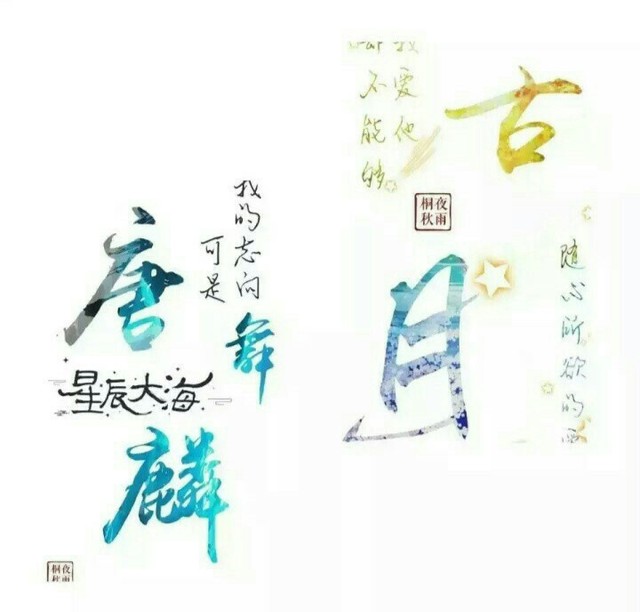 我的志向
可是
唐
舞
星辰大海
麟
桐夜
秋雨
我
爱他
不能够
古
月
桐夜
秋雨
随心所欲的